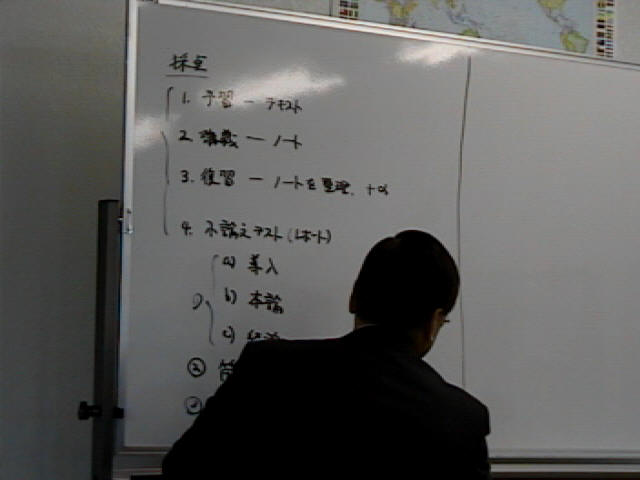 採点
1. 予習 ー テキスト
2. 講義 ー ノート
3. 復習 ー ノートを整理、+α
4. 小論文テスト(レポート)
a) 導入
b) 本論
c)
②